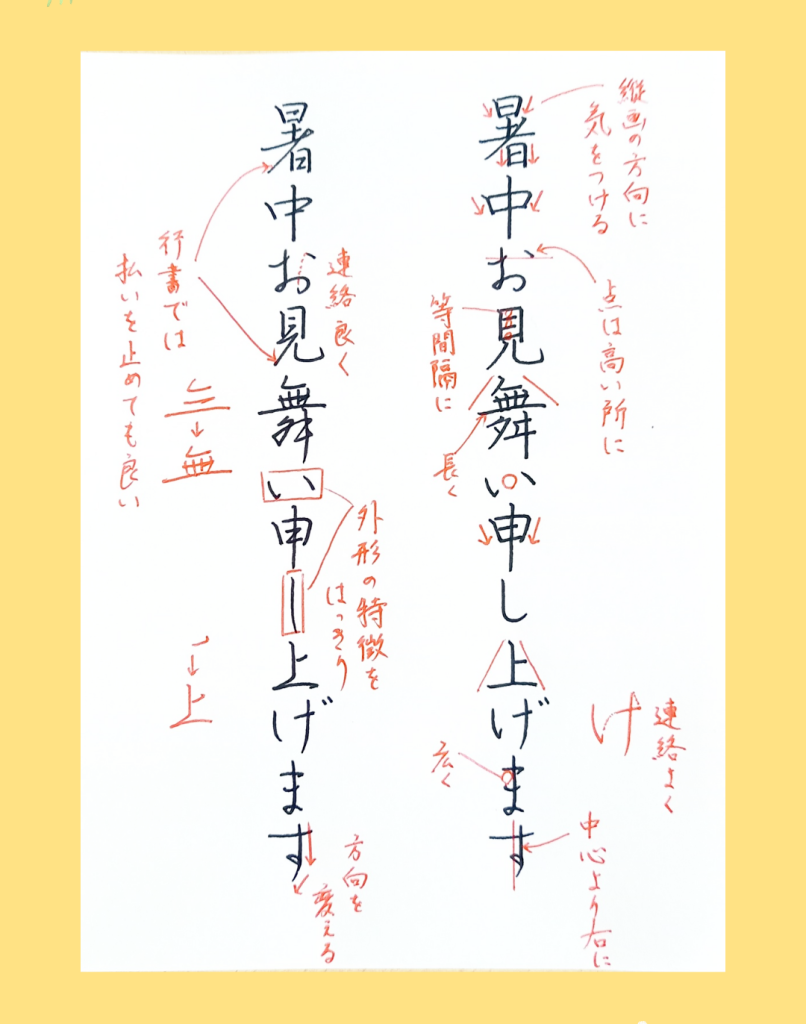 縦画の方向に
気をつける
暑中お見舞い申し上げます
点は高い所に
等間隔に
長く
け
連絡よく
広く
中心より右に
暑中お見舞い申し上げます
連絡良く
行書では
払いを止めても良い
無
外形の特徴を
はっきり
上
方向を
変える